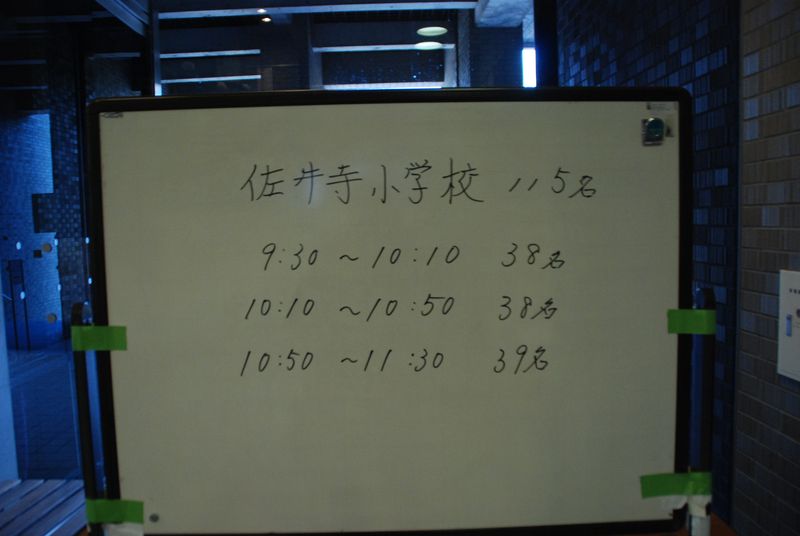 佐井寺小学校 115名
9:30 ～ 10:10 38名
10:10 ～ 10:50 38名
10:50 ～ 11:30 39名